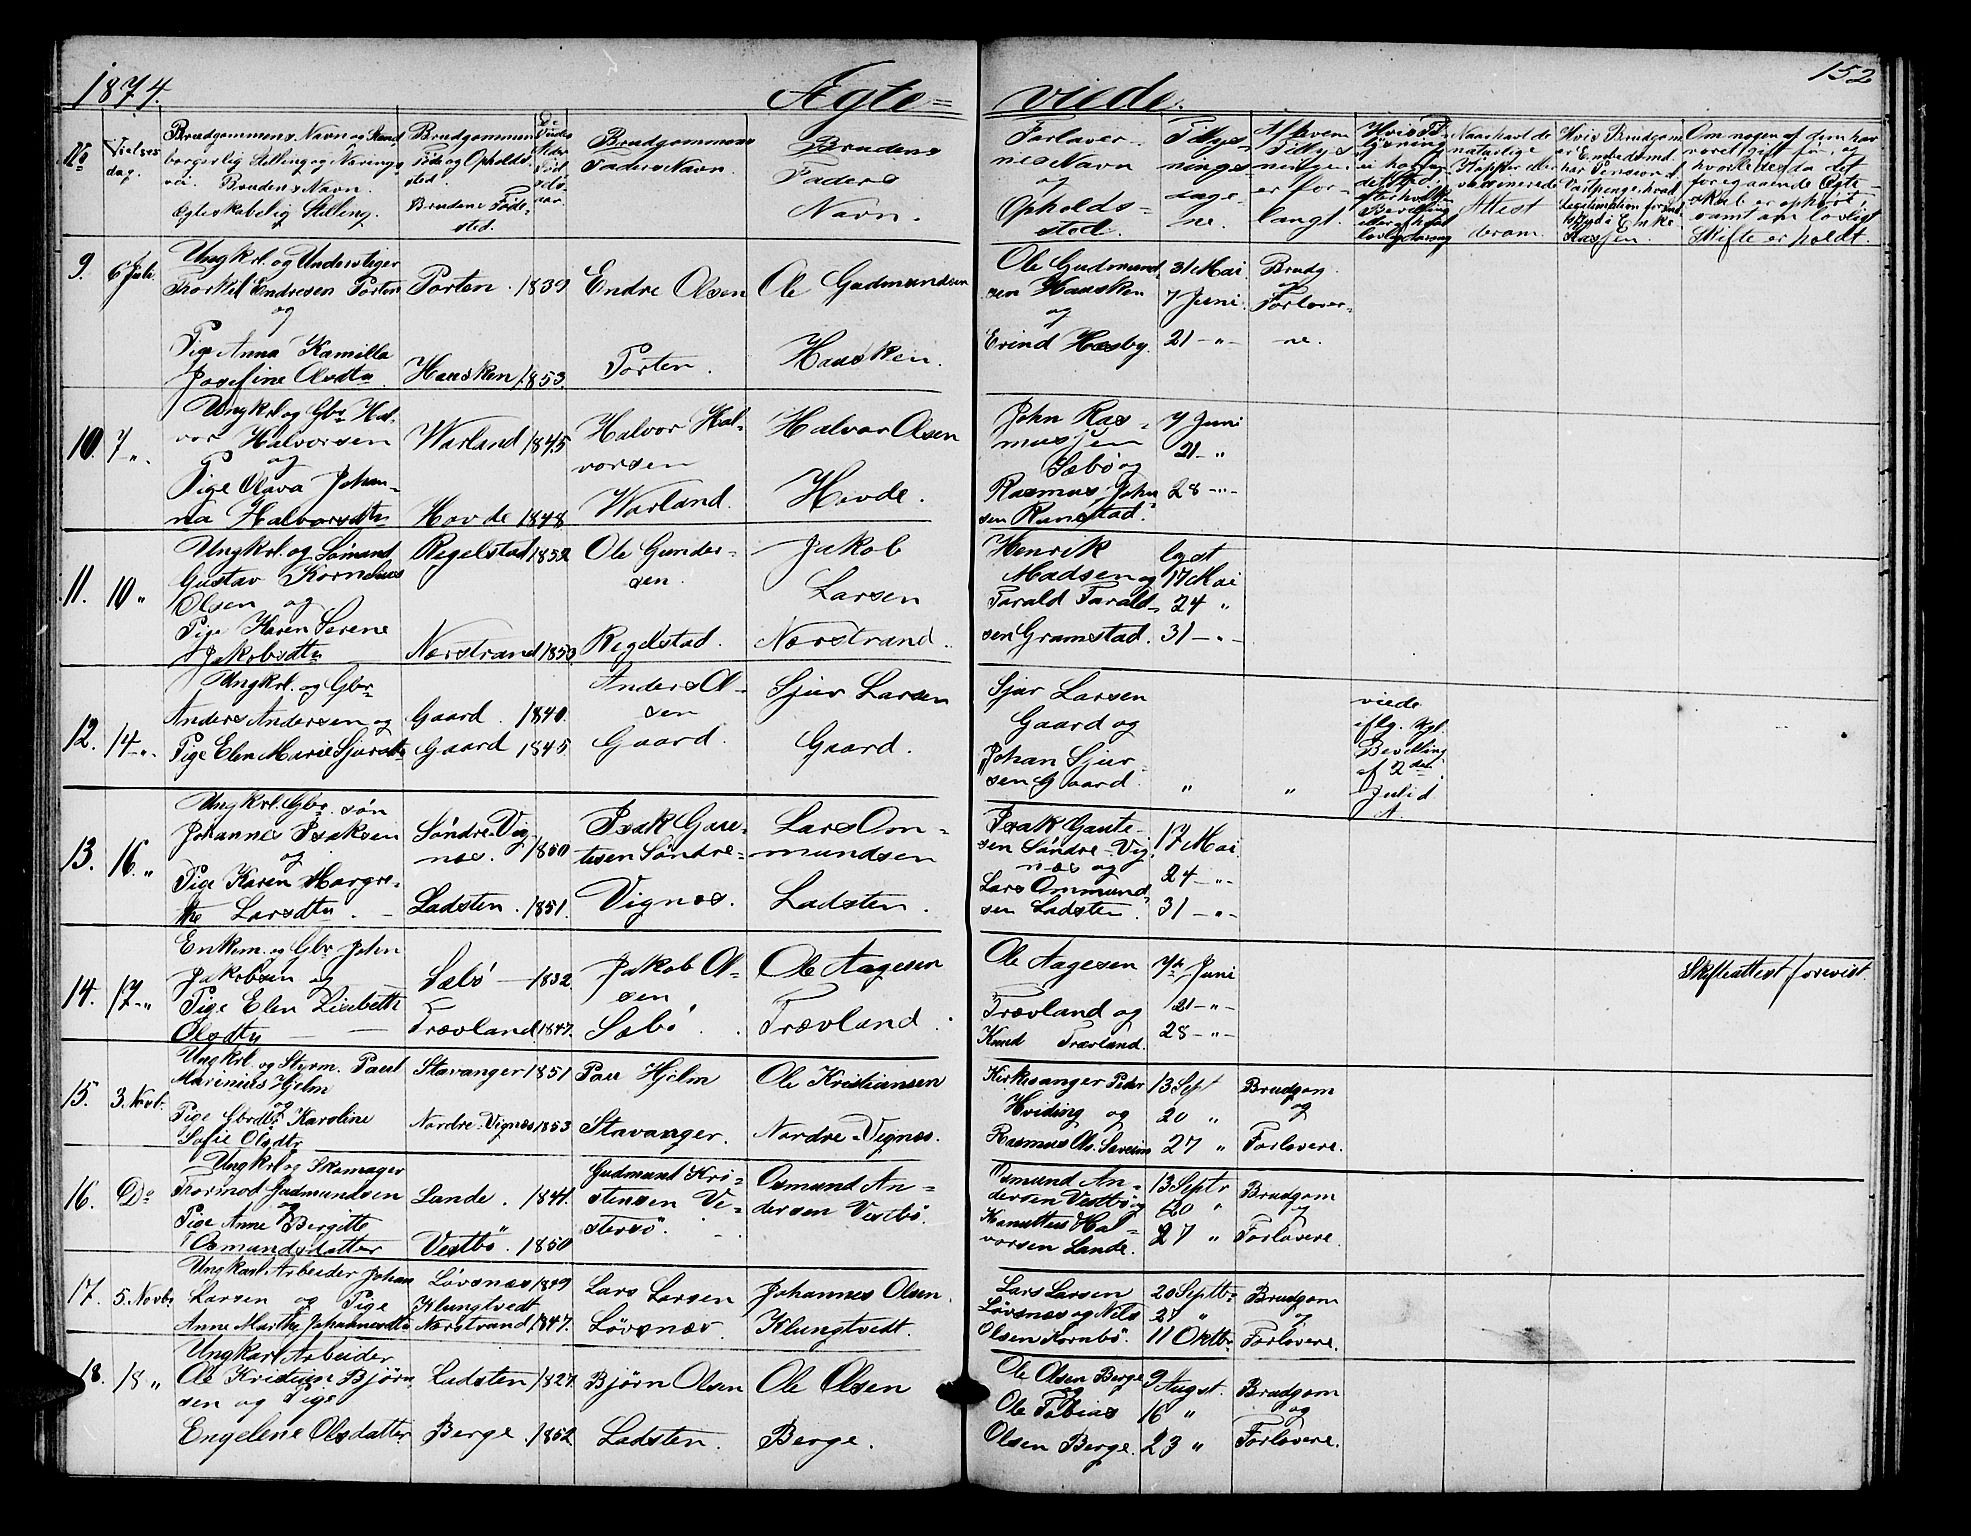 1874.
Ægte=
viede.
152
No
Vielses
dag.
Brudgommens Navn og Stand
borgerlig Stilling og Nærings
vei. Brudens Navn.
Ægteskabelig Stilling.
Brudgommens
Føde og Opholds-
sted.
Brudens Føde-
sted.
Brudgommens
Faders Navn.
Brudens
Faders
Navn.
Forlover-
nes Navn
og
Opholds-
sted.
Tillys-
nings-
dage-
ne.
Af hvem
Tillys
ningen
er for-
langt.
Om nogen af dem har
været gift før, og
hvorledes da det
foregaaende Ægte-
skab er ophørt,
samt om lovligt
Skifte er holdt.
9.
6 Juli.
Ungkrl. og
Torkel Endresen Porten
og
Pige Anna Kamilla
Josefine Olsdtr
Porten. 1839
Haasken 1853.
Endre Olsen
Porten.
Ole Gudmundsen
Haasken.
Ole Gudmund-
sen Haasken
og
Eivind Hæsby.
31 Mai
7 Juni.
21 - " -
Brudg.
og
Forlover-
ne.
10.
7 "
Ungkrl og Gbr Hal-
vor Halvorsen
og
Pige Olava Johan-
na Halvorsdtr
Warland 1845
Hovde 1848
Halvor Hal-
vorsen
Warland.
Halvor Olsen
Hovde.
John Ras-
musjen
Sæbø og
Rasmus John
sen Ramstad.
7 Juni
21 - "
28 - " -
11.
10 "
Ungkrl. og Sømand
Gustav Kornelius
Olsen og
Pige Karen Serene
Jakobsdtr
Regelstad 1852
Nærstrand 1850
Ole Gunder-
sen.
Regelstad.
Jakob
Larsen
Nærstrand.
Henrik
Madsen og
Tarald Tarald-
sen Gramstad.
lyst
17 Mai
24 "
31 - " -
12.
14 - "
Ungkrl. og Gbr
Anders Andersen og
Pige Elen Marie Sjursdtr
Gaard. 1840.
Gaard 1845
Anders Ol-
sen
Gaard.
Sjur Larsen
Gaard.
Sjur Larsen
Gaard og
Johan Sjur-
sen Gaard.
"
"
viede
iflg. kgl.
Bevilling
af 2den
Juli d
A.
13.
16 "
Ungkrl. Gbr. søn
Johannes Isaksen
og
Pige Karen Margre-
the Larsdtr.
Søndre-Vig-
næs. 1850
Ladsten. 1851.
Isak Gau-
tesen Søndre-
Vignæs.
Lars Om-
mundsen
Ladsten.
Isak Gaute-
sen Søndre-Vig
næs og
Lars Ommund
sen Ladsten.
17 Mai.
24 - " -
31 - " -
14.
17 - "
Enkem. og Gbr John
Jakobsen og
Pige Elen Lisebeth
Olsdtr
Sæbø — 1832
Trævland 1847.
Jakob Ol-
sen
Sæbø.
Ole Aagesen
Trævland.
Ole Aagesen
Trævland og
Knud Trævland.
7de Juni
21 - " -
28 - " -
Skifteattest forevist.
15.
3. Novb.
Ungkrl. og Styrm. Paul
Marinius Hjelm
og
Pige Karoline
Sofie Olsdtr
Stavanger 1851
Nordre-Vignæs 1853
Hjelm
Stavanger.
Ole Kristiansen
Nordre-Vignæs.
Kirkesanger Peder
Hviding og
Rasmus Ols.
13 Sept
20 "
27 "
Brudgom
og
Forlovere.
16.
Do
Ungkrl og Skomager
Tormod Gudmundsen
og
Pige Anne Bergitte
Osmundsdatter
Lande. 1841.
Vestbø. 1850
Gudmund Kri-
stensen Ve-
stersø.
Osmund An-
dersen Vestbø.
Osmund An-
dersen Vestbø og
Hal-
vorsen Lande.
13 Septr
20 "
27 "
Brudgom
og
Forlovere.
17.
5. Novbr
Ungkarl Arbeider Johan
Larsen og Pige
Anne Marthe Johannesdtr
Løvsnæs 1849
Klungtvedt
Nærstrand 1847.
Lars Larsen
Løvsnæs.
Johannes Olsen.
Klungtvedt.
Lars Larsen
Løvsnæs og Nils
Olsen Kornbø.
20 Septbr
27 "
11 Oktbr.
Brudgom
og
Forlovere.
18.
18 "
Ungkarl Arbeider
Ole Kristian Bjørn
sen og Pige
Engelene Olsdatter
Ladsten 1827.
Berge. 1852
Bjørn Olsen
Ladsten.
Ole Olsen
Berge.
Ole Olsen Berge
og
Ole Tobias
Olsen Berge.
9 August.
16 "
23 "
Brudgom
og
Forlovere.